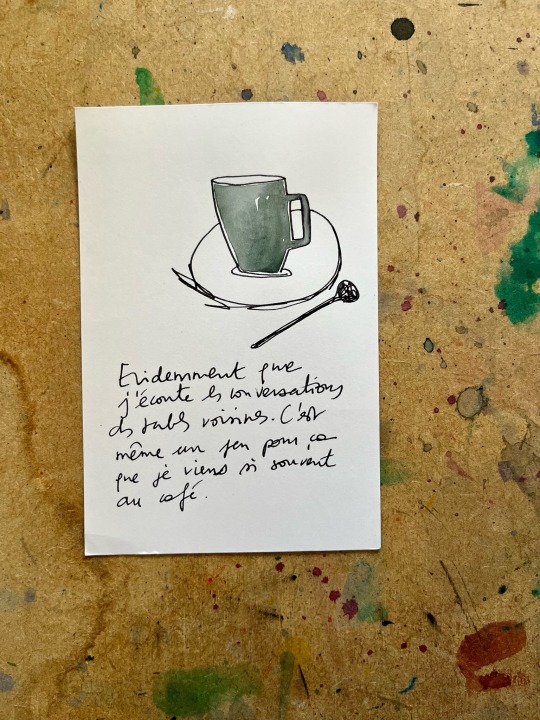 Evidemment que
j'écoute les conversations
des tables voisines. C'est
même un peu pour ça
que je viens si souvent
au café.